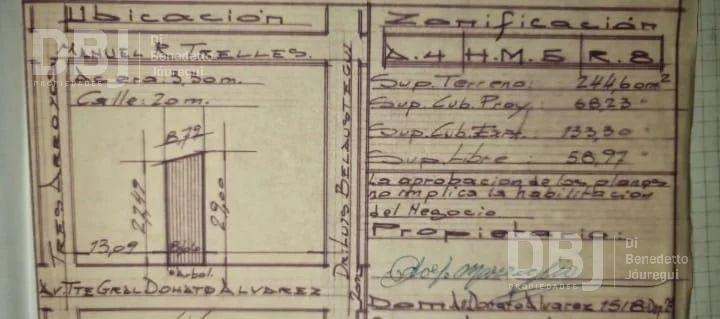 Ubicación
MANUEL R. TRELLES.
Acera: 3,50 m.
Calle: 20 m.
8,72
27,49
29,00
13,09
árbol.
TRES ARROYOS
DR. LUIS BELAUSTEGUI
AV. TTE GRAL DONATO ALVAREZ
Zonificación
A.4 H.M.5 R.8
Sup. Terreno: 244,60 m²
Sup. Cub. Proy: 68,23 "
Sup. Cub. Exist. 133,30 "
Sup. Libre: 58,97 "
La aprobacion de los planos
no implica la habilitacion
del Negocio
Propietario:
Dom. Av Donato Alvarez 1518
DBJ
Di
Benedetto
Jáuregui
PROPIEDADES
DBJ
Di
Benedetto
Jáuregui
PROPIEDADES